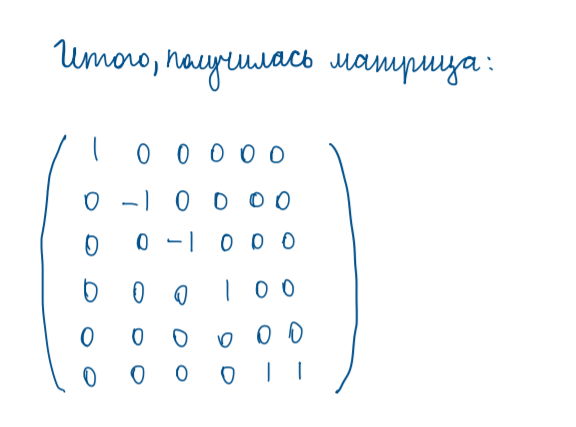 Итого, получилась матрица:
1 0 0 0 0 0
0 -1 0 0 0 0
0 0 -1 0 0 0
0 0 0 1 0 0
0 0 0 0 0 0
0 0 0 0 1 1